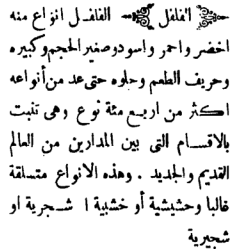 الفلفل الفلفل انواع منه
اخضر واحمر واسود وصغير الحجم وكبيره
وحريف الطعم وحلوه حتى عد من أنواعه
اكثر من اربع مئة نوع وهى تنبت
بالاقسام التى بين المدارين من العالم
القديم والجديد . وهذه الانواع متسلقة
غالبا وحشيشية أو خشبية ا شجرية او
شجيرية